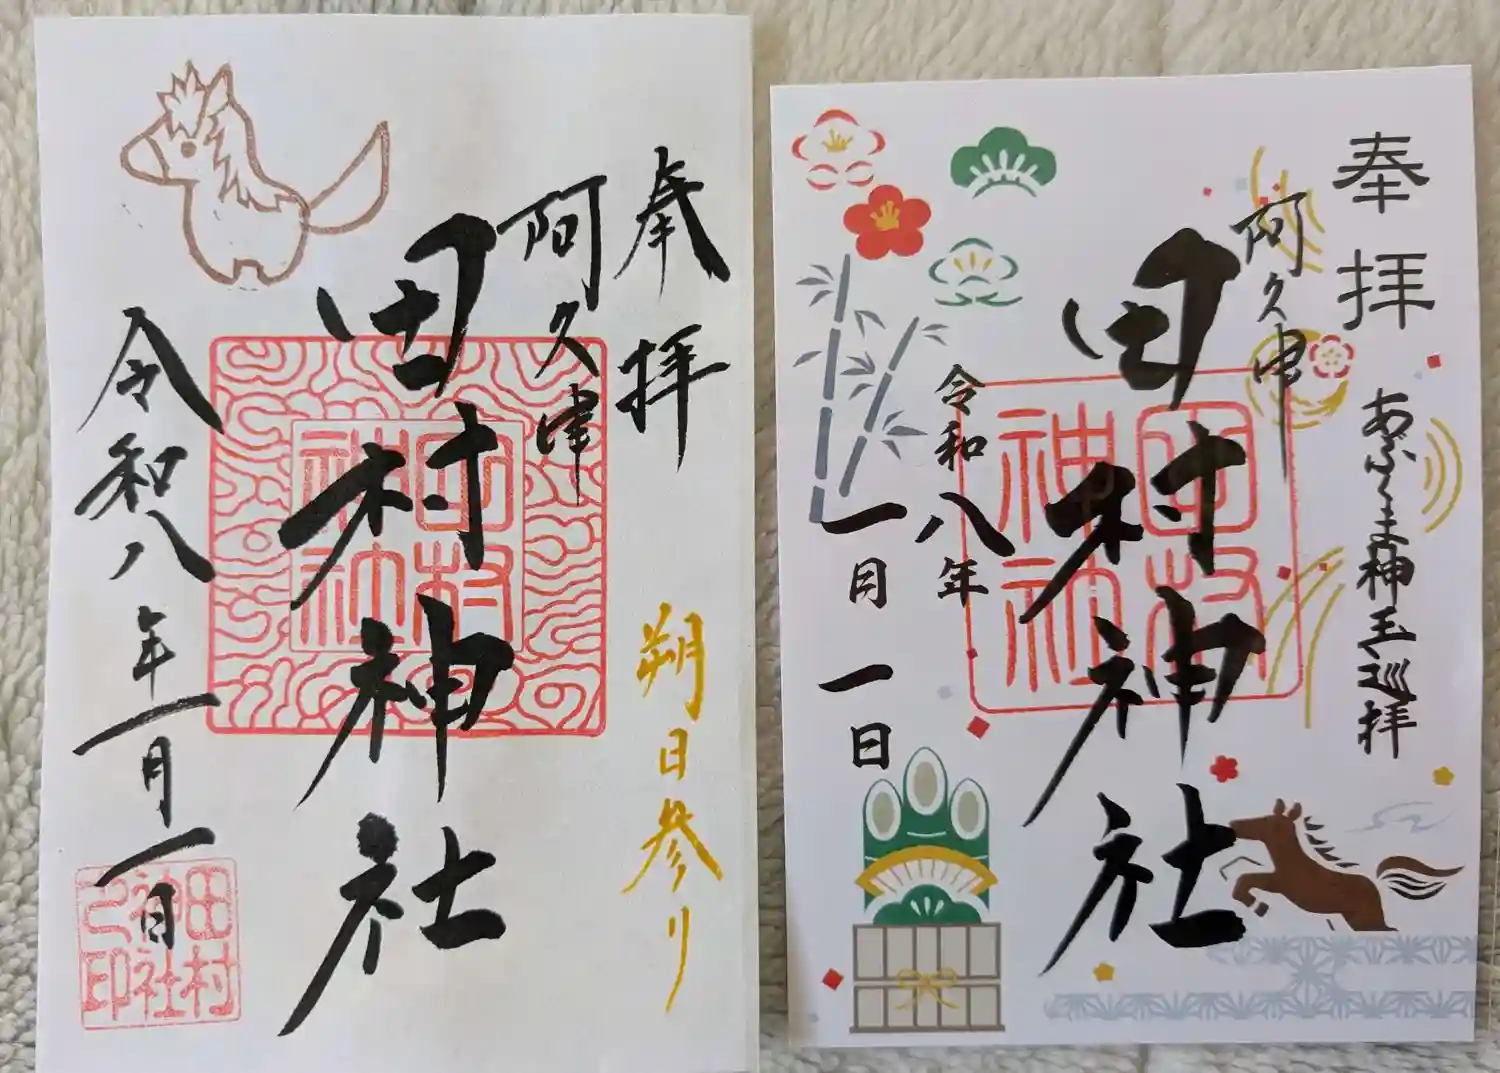 奉拝
朔日参り
阿久津
田村神社
田村
神社
令和八年一月一日
田村
神社
之印
奉拝
あぶくま神玉巡拝
阿久津
田村神社
田村
神社
令和八年
一月一日